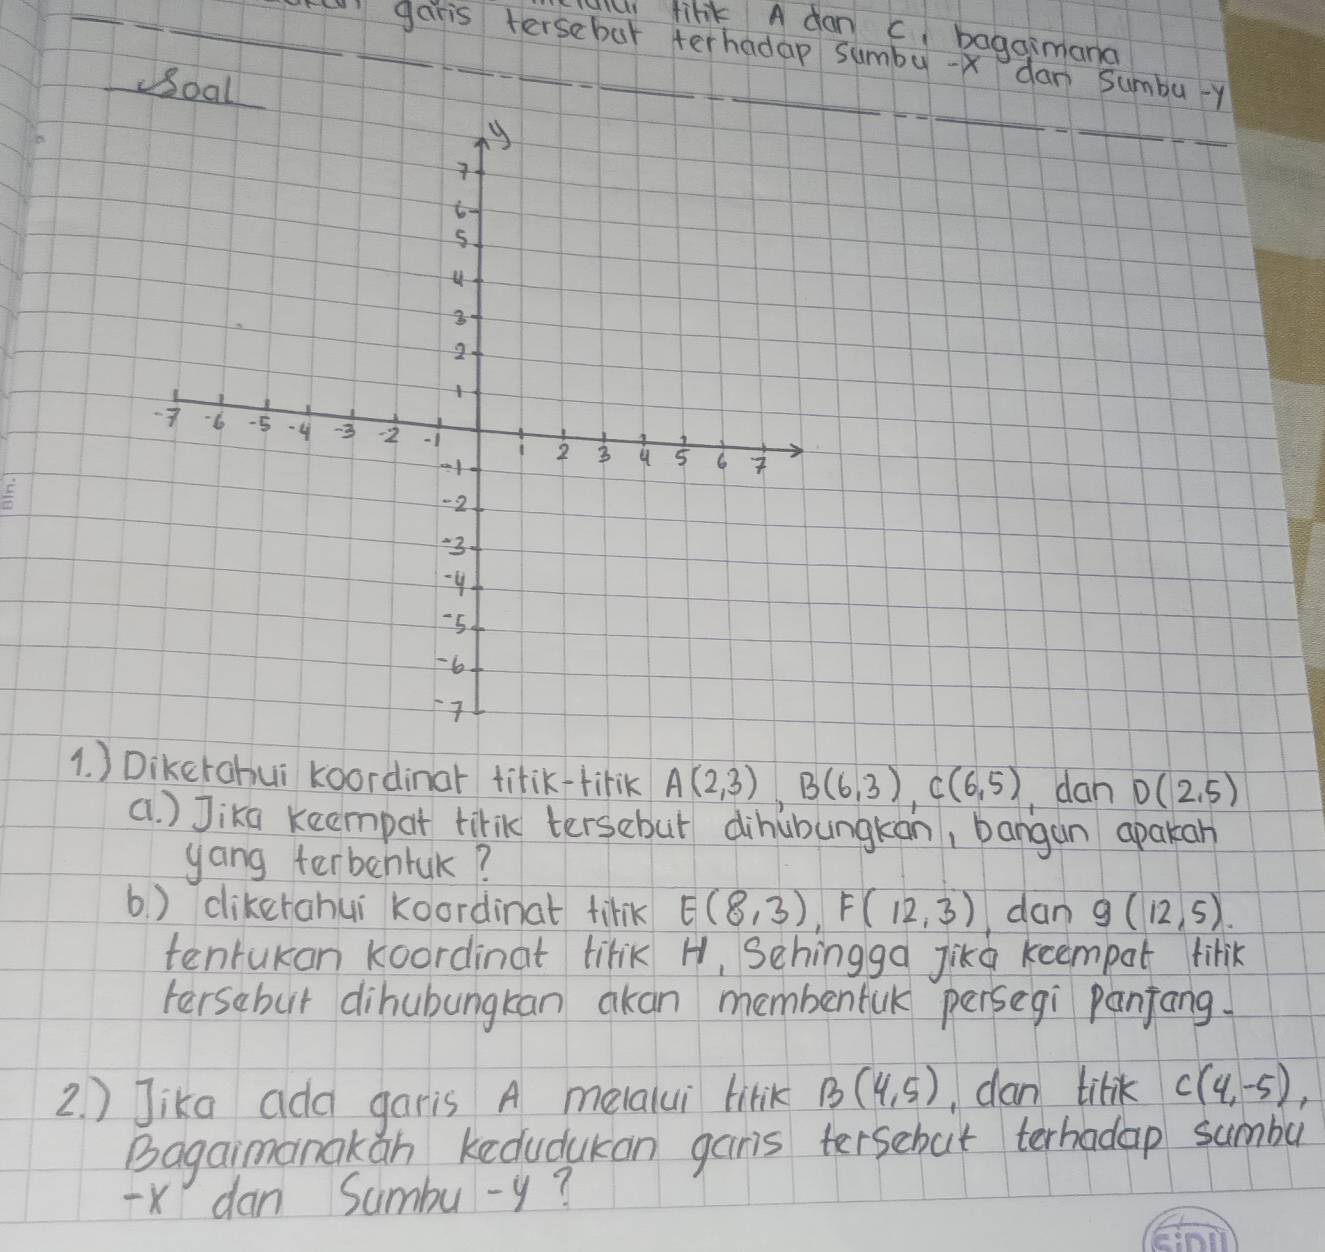 garis tersebut titik A dan C, bagaimana
terhadap sumbu -x dan sumbu -y
Soal
y
7
6
5
4
3
2
1
-7 -6 -5 -4 -3 -2 -1 1 2 3 4 5 6 7
-1
-2
-3
-4
-5
-6
-7
1.) Diketahui koordinat titik-titik A(2,3), B(6,3), C(6,5), dan D(2,5)
a.) Jika keempat titik tersebut dihubungkan, bangun apakah
yang terbentuk?
b.) diketahui koordinat titik E(8,3), F(12,3), dan g(12,5).
tentukan koordinat titik H, Sehingga jika keempat titik
tersebut dihubungkan akan membentuk persegi panjang.
2.) Jika ada garis A melalui titik B(4,5), dan titik C(4,-5),
Bagaimanakah kedudukan garis tersebut terhadap sumbu
-x dan Sumbu -y?
Bln.
SIDU